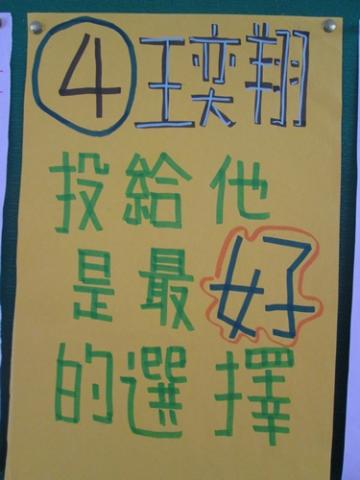 4 王奕翔
投給他
是最好
的選擇